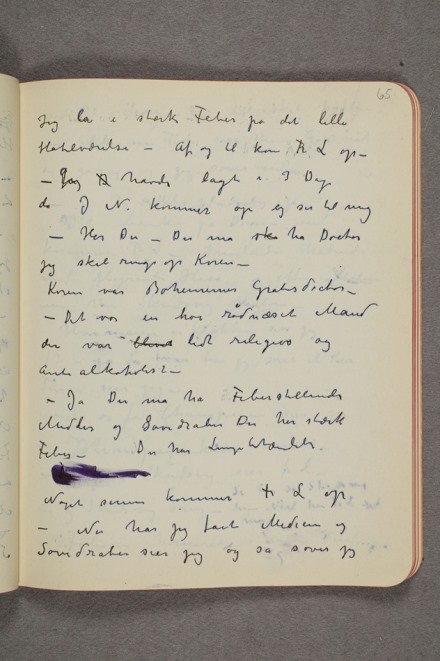 65
Jeg la i stærk Feber på det lille
Hotelværelse – Af og til kom Fr L op –
– Jeg havde lagt i 3 Dage
da J N. kommer op og ser til mig
– Hør Du – Du ma ha Doctor
jeg skal ringe op Koren –
Koren var Bohemernes Gratisdoctor –
– Det var en høi rødnæset Mand
der var lidt religiøs og
antialkoholist –
– Ja Du ma ha Feberstillende
Midler og Sovedraaber Du har stærk
Feber – Du har Lungebetændelse.
Noget senere kommer Fr L op
– Nu har jeg faat Medicin og
Sovedraaber sier jeg og sa sover jeg